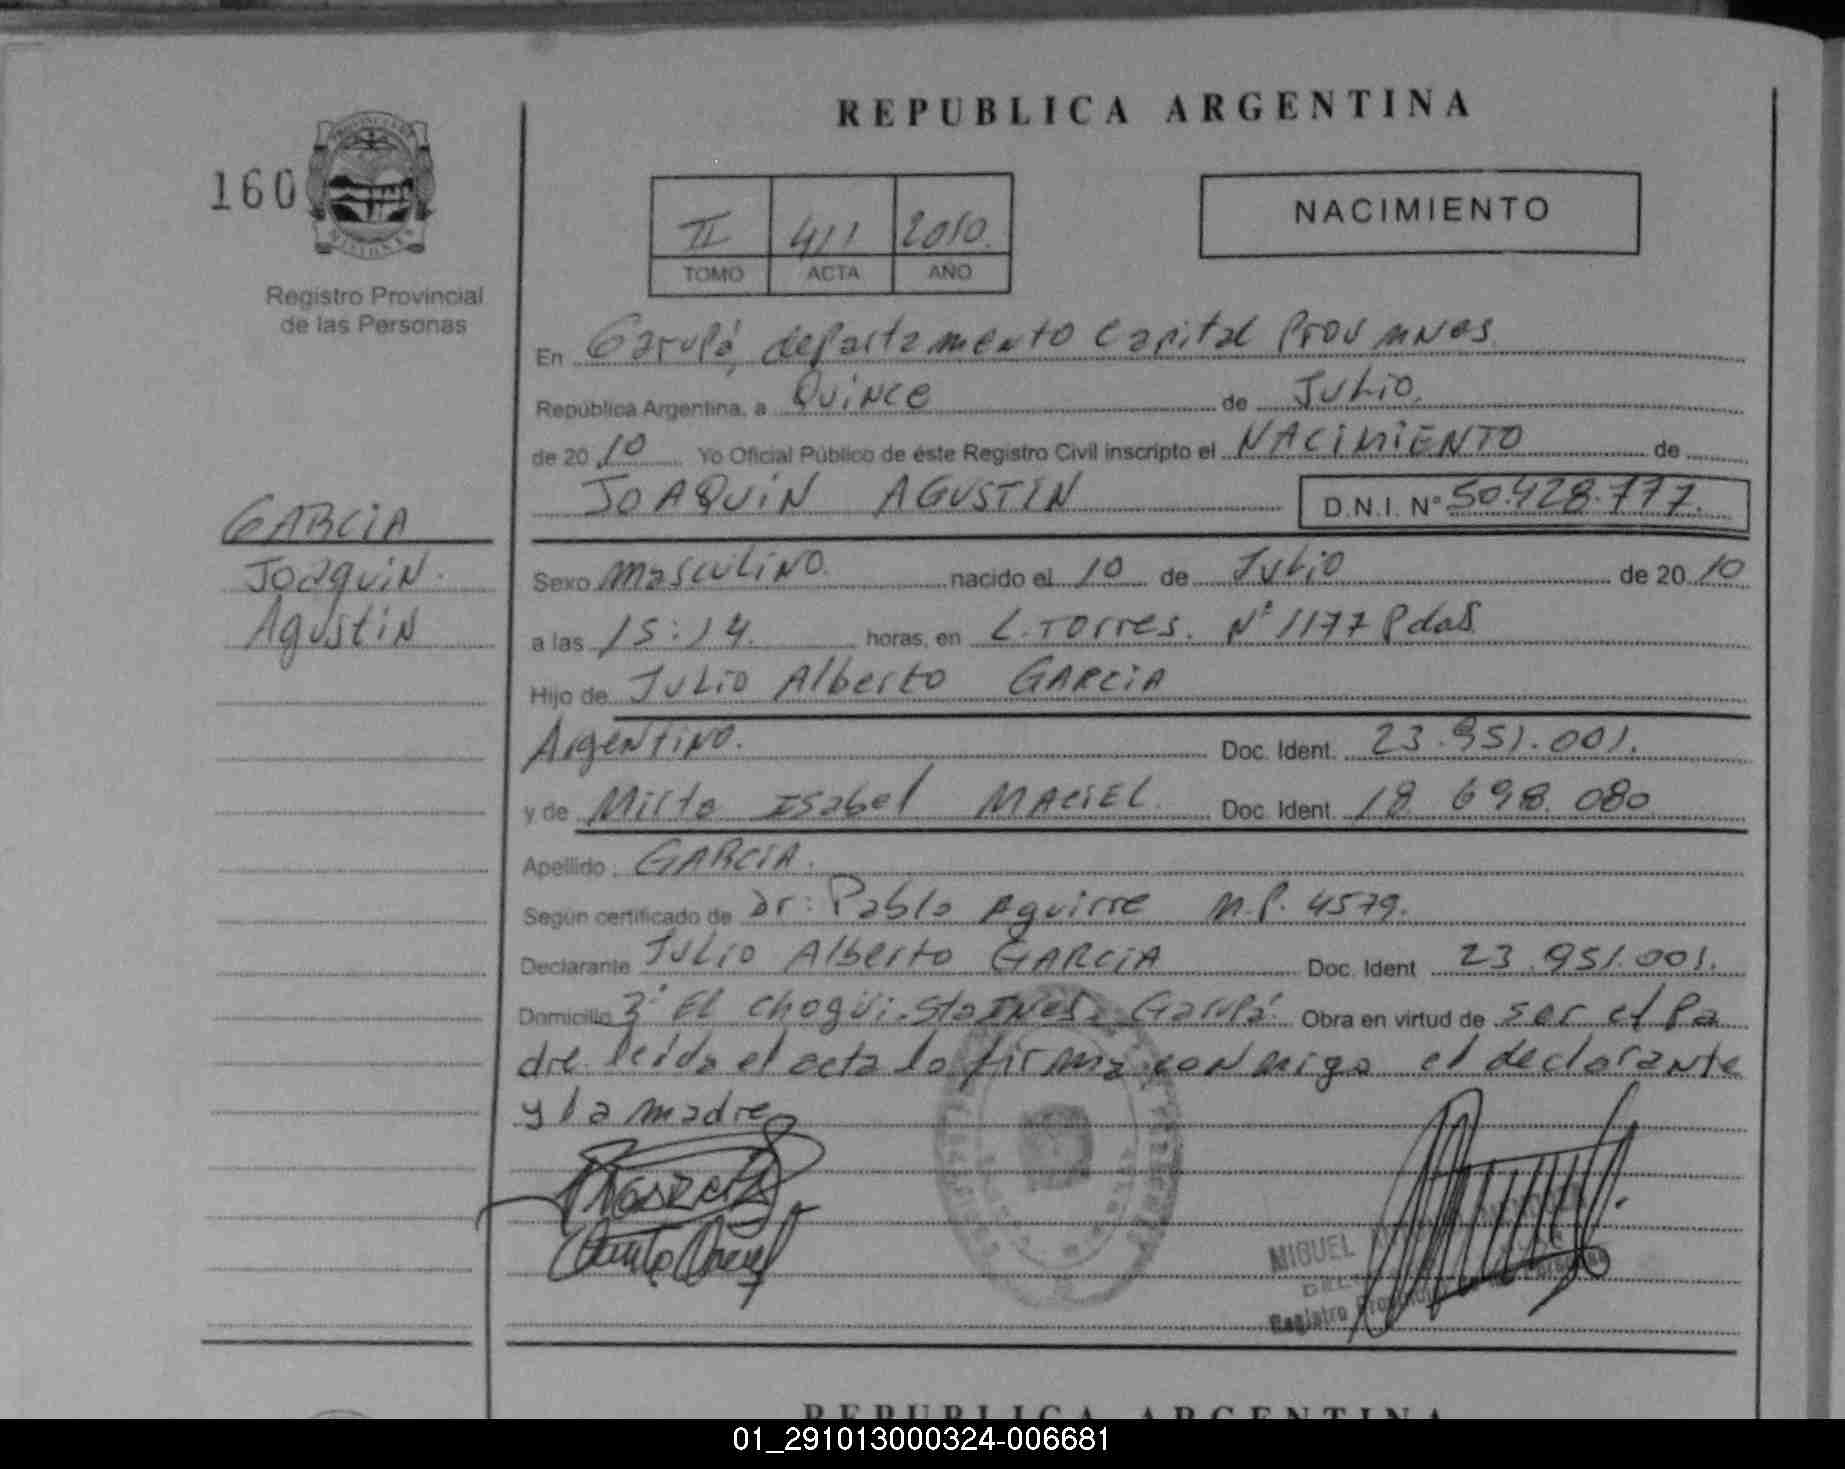 REPUBLICA ARGENTINA
160
PROVINCIA DE
MISIONES
Registro Provincial
de las Personas
II 411 2010.
TOMO ACTA AÑO
NACIMIENTO
En Garupá, departamento Capital Prov Mnes.
República Argentina, a Quince de Julio.
de 2010 Yo Oficial Público de éste Registro Civil inscripto el NACIMIENTO de
JOAQUIN AGUSTIN D.N.I. Nº 50.428.777.
GARCIA
Joaquin.
Agustin
Sexo masculino. nacido el 10 de Julio de 2010
a las 15:14. horas, en L. Torres. Nº 1177 Pdas
Hijo de Julio Alberto GARCIA
Argentino. Doc. Ident. 23.951.001.
y de Mirta Isabel MACIEL. Doc. Ident. 18.698.080
Apellido GARCIA.
Según certificado de Dr: Pablo Aguirre M.P. 4579.
Declarante Julio Alberto GARCIA Doc. Ident 23.951.001.
Domicilio El Garupá. Obra en virtud de ser el Pa
dre leida el acta la firma conmigo el declarante
y la madre
MIGUEL
Registro
REPUBLICA ARGENTINA
01_291013000324-006681